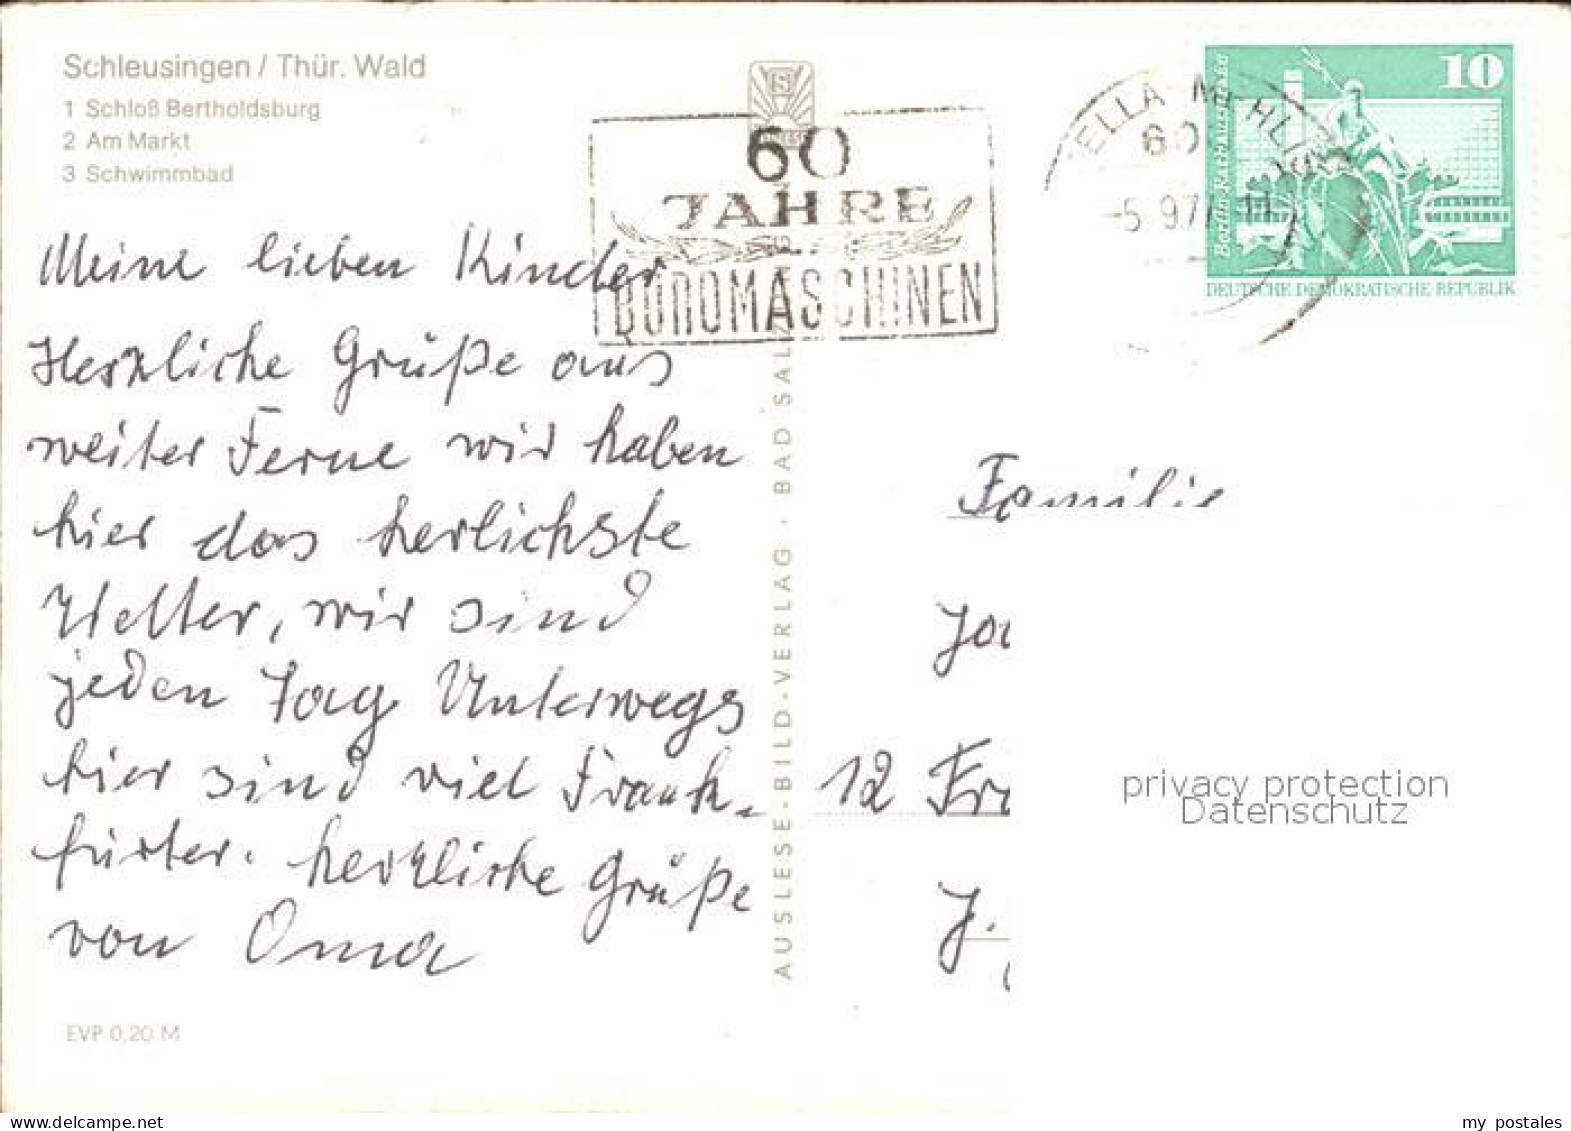 Schleusingen / Thür. Wald
1 Schloß Bertholdsburg
2 Am Markt
3 Schwimmbad
60
JAHRE
BÜROMASCHINEN
ELLA-MEHLIS
60
-5.9.77-11
10
Berlin-Rathausstraße
DEUTSCHE DEMOKRATISCHE REPUBLIK
Meine lieben Kinder
Herzliche Grüße aus
weiter Ferne wir haben
hier das herlichste
Wetter, wir sind
jeden Tag Unterwegs
hier sind viel Frank-
furter. herzliche Grüße
von Oma
EVP 0,20 M
AUSLESE-BILD-VERLAG · BAD SALZ
Familie
12 Fr
J.
privacy protection
Datenschutz
delcampe.net
my_postales